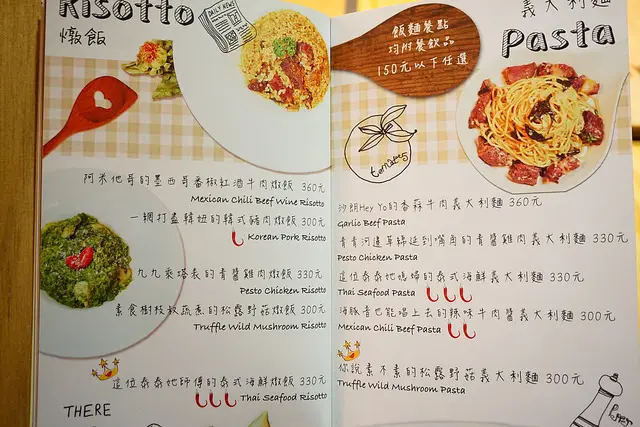 Risotto
燉飯
DAILY NEWS
阿米他哥的墨西哥番椒紅酒牛肉燉飯 360元
Mexican Chili Beef Wine Risotto
一網打盡韓妞的韓式豬肉燉飯 300元
Korean Pork Risotto
九九乘塔表的青醬雞肉燉飯 330元
Pesto Chicken Risotto
素食樹枝被蔬煮的松露野菇燉飯 300元
Truffle Wild Mushroom Risotto
這位泰泰他師傅的泰式海鮮燉飯 330元
Thai Seafood Risotto
THERE
飯麵餐點
均附餐飲品
150元以下任選
義大利麵
Pasta
tomatoes
沙朗Hey Yo的香蒜牛肉義大利麵 360元
Garlic Beef Pasta
青青河邊草綿延到嘴角的青醬雞肉義大利麵 330元
Pesto Chicken Pasta
這位泰泰她媳婦的泰式海鮮義大利麵 330元
Thai Seafood Pasta
海豚音也能唱上去的辣味牛肉醬義大利麵 300元
Mexican Chili Beef Pasta
你說素不素的松露野菇義大利麵 300元
Truffle Wild Mushroom Pasta